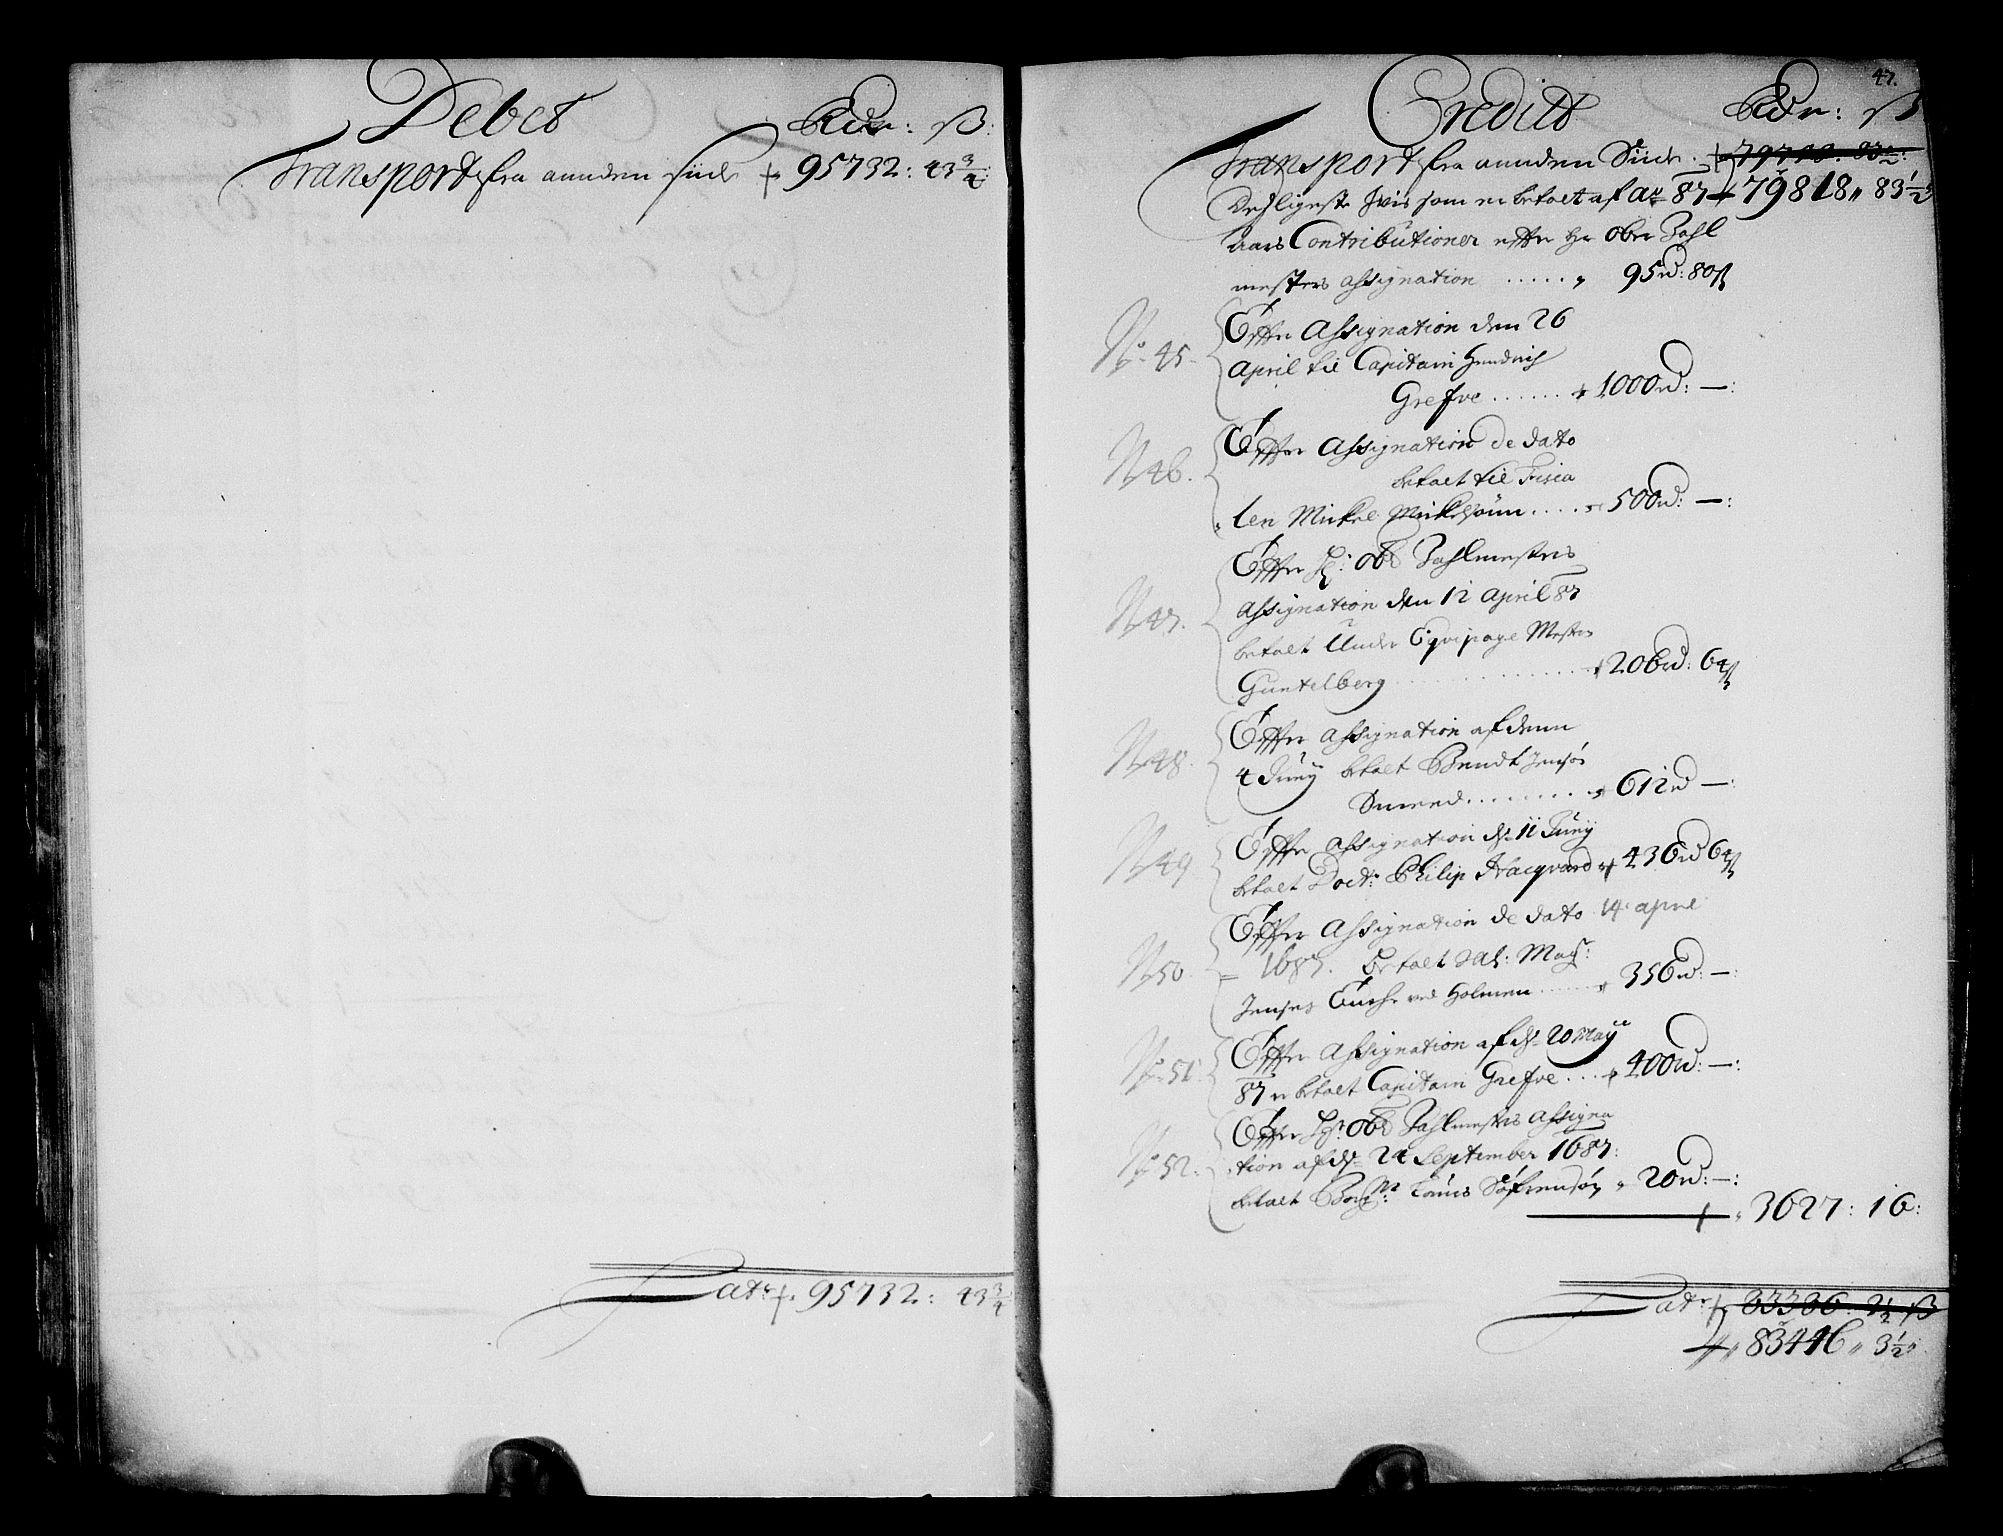 Debet Rdr: ß:
Transport fra anden side 95732: 43 3/4
Latr 95732: 43 3/4
47.
Credit Rdr: ß
Transport fra annden Siide
Deßligeste hvis som er betalt af Ao 87 79818 83 1/2
aars Contributioner effter Hr Ober Zahl
mesters assignation ..... 95rd: 80ß
No 45. Effter Assignation den 26
April til Capitain Hendrich
Grefve ...... 1000rd: —:
N 46. Effter Assignation de dato
betalt til
len Mickel Mickelsønn .... 500rd: —:
N 47. Effter Hr: Ob Zahlmesters
assignation den 12 April 87
betalt Under Eqvipage Mester
Guntelberg 206rd: 64ß
N 48. Effter assignation af denn
4 Junij betalt Bendt Jensøn
Smeed ........ 612rd —:
N 49 Effter assignation d. 11 Junij
betalt Doct: Philip Hacqvard 436rd 64ß
N 50. Effter Assignation de dato 14 April
1687. betalt Sal: Mag:
Jenses Encke ved Holmen ..... 356rd: —:
No 51. Effter Assignation af d. 20 Maij
87 er betalt Capitain Grefve ... 400rd: —:
No 52. Effter Hr: Ob Zahlmesters Assigna
tion af d. 24 September 1687:
betalt Borgm: Søfrensøn 20rd: —:
3627: 16:
Latr 83336: 3 1/2 ß
83446 3 1/2